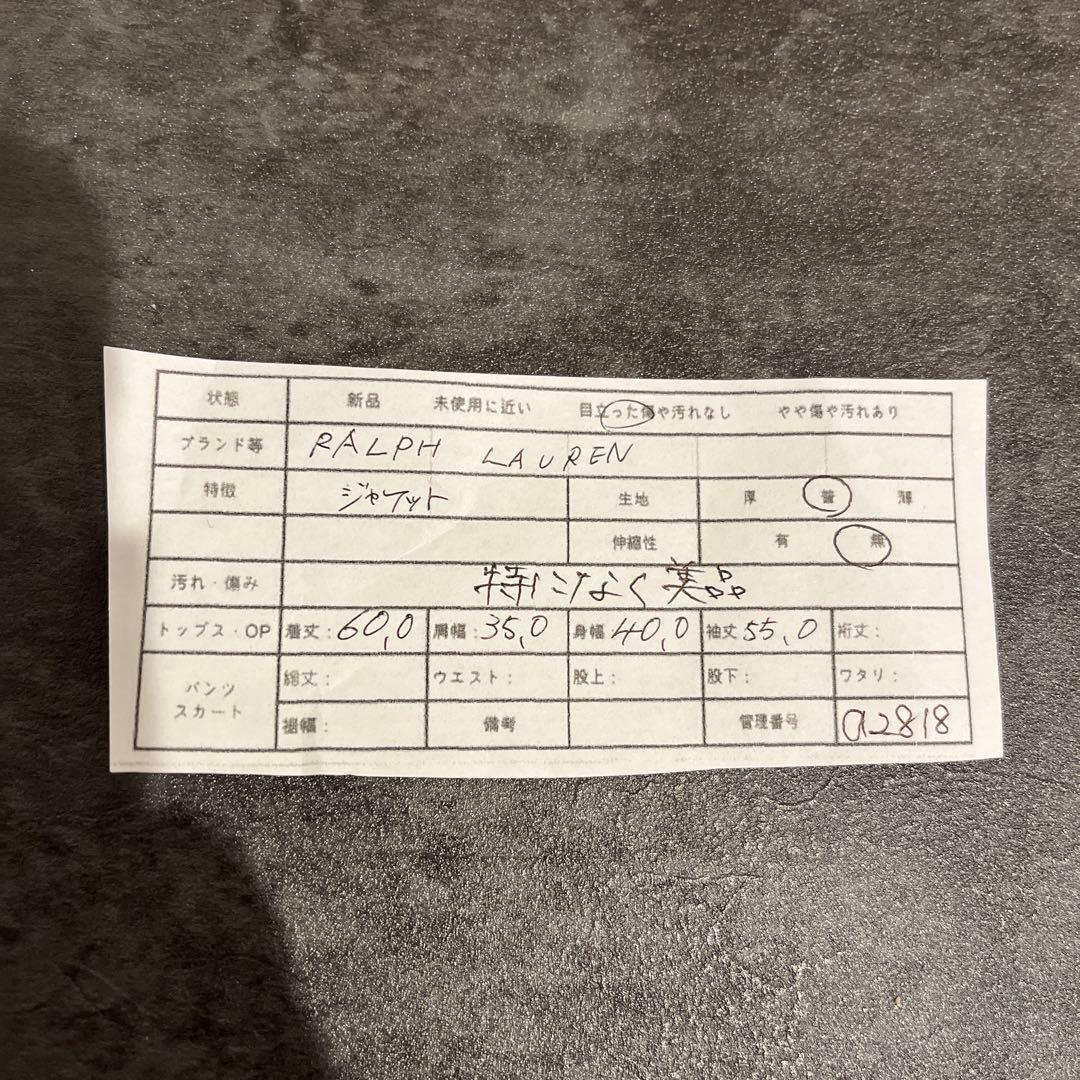 状態 新品 未使用に近い 目立った傷や汚れなし やや傷や汚れあり
ブランド等 RALPH LAUREN
特徴 ジャケット 生地 厚 普 薄
伸縮性 有 無
汚れ・傷み 特になく美品
トップス・OP 着丈:60,0 肩幅:35,0 身幅:40,0 袖丈55,0 裄丈:
パンツ スカート 総丈: ウエスト: 股上: 股下: ワタリ:
裾幅: 備考 管理番号 a2818